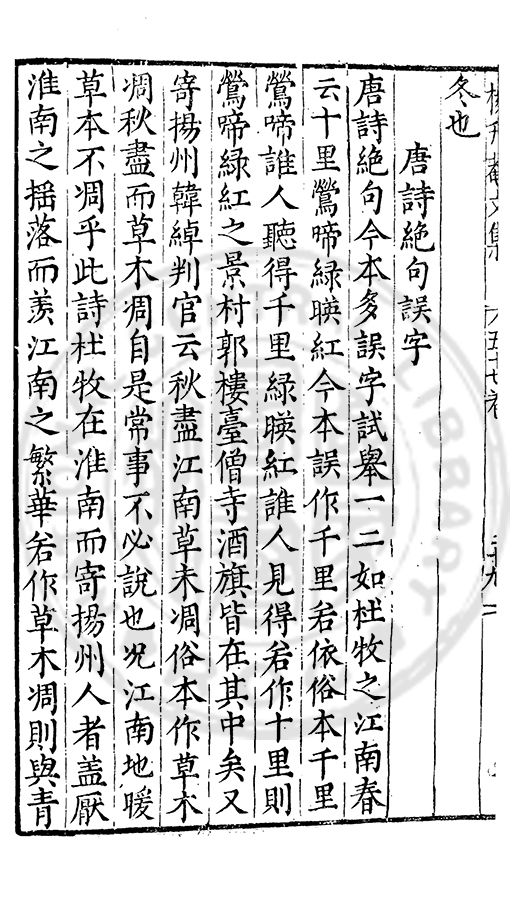 楊升菴文集 五十七卷
冬也
唐詩絕句誤字
唐詩絕句今本多誤字試舉一二如杜牧之江南春
云十里鶯啼綠暎紅今本誤作千里若依俗本千里
鶯啼誰人聽得千里綠暎紅誰人見得若作十里則
鶯啼綠紅之景村郭樓臺僧寺酒旗皆在其中矣又
寄揚州韓綽判官云秋盡江南草未凋俗本作草木
凋秋盡而草木凋自是常事不必說也况江南地暖
草本不凋乎此詩杜牧在淮南而寄揚州人者蓋厭
淮南之搖落而羡江南之繁華若作草木凋則與青